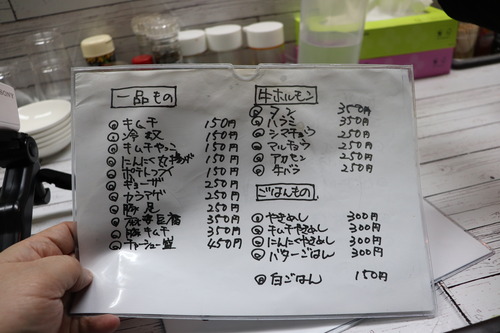 一品もの
キムチ 150円
冷奴 150円
キムチやっこ 150円
にんにく丸揚げ 150円
ポテトフライ 150円
ギョーザ 250円
カラアゲ 250円
豚足 250円
麻婆豆腐 350円
豚キムチ 350円
チャーシュー盛 450円
牛ホルモン
タン 350円
ハラミ 350円
シマチョウ 250円
マルチョウ 250円
アカセン 250円
牛バラ 250円
ごはんもの
やきめし 300円
キムチやきめし 300円
にんにくやきめし 300円
バターごはん 300円
白ごはん 150円